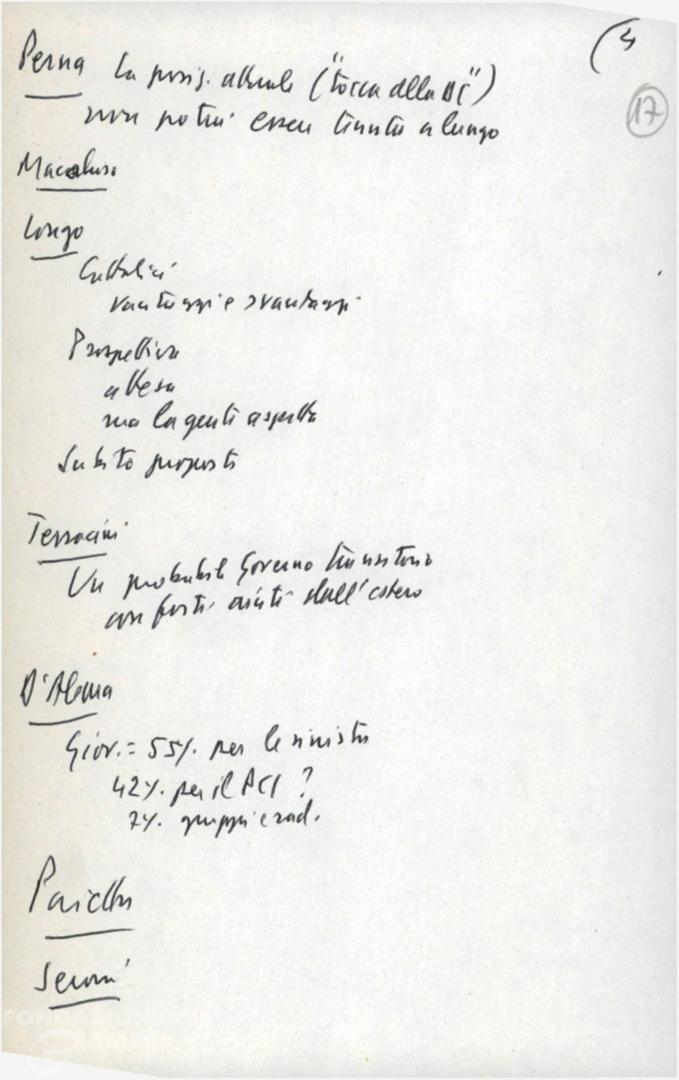 (4
17
Perna la posiz. attuale ("tocca alla DC")
non potrà essere tenuta a lungo
Macaluso
Longo
Cattolici
vantaggi e svantaggi
Prospettiva
attesa
ma la gente aspetta
Subito proposte
Terracini
Un probabile Governo transitorio
con forti aiuti dall'estero
D'Alema
Giov. = 55%. per le sinistre
42%. per il PCI ?
7%. gruppi e rad.
Pajetta
Seroni